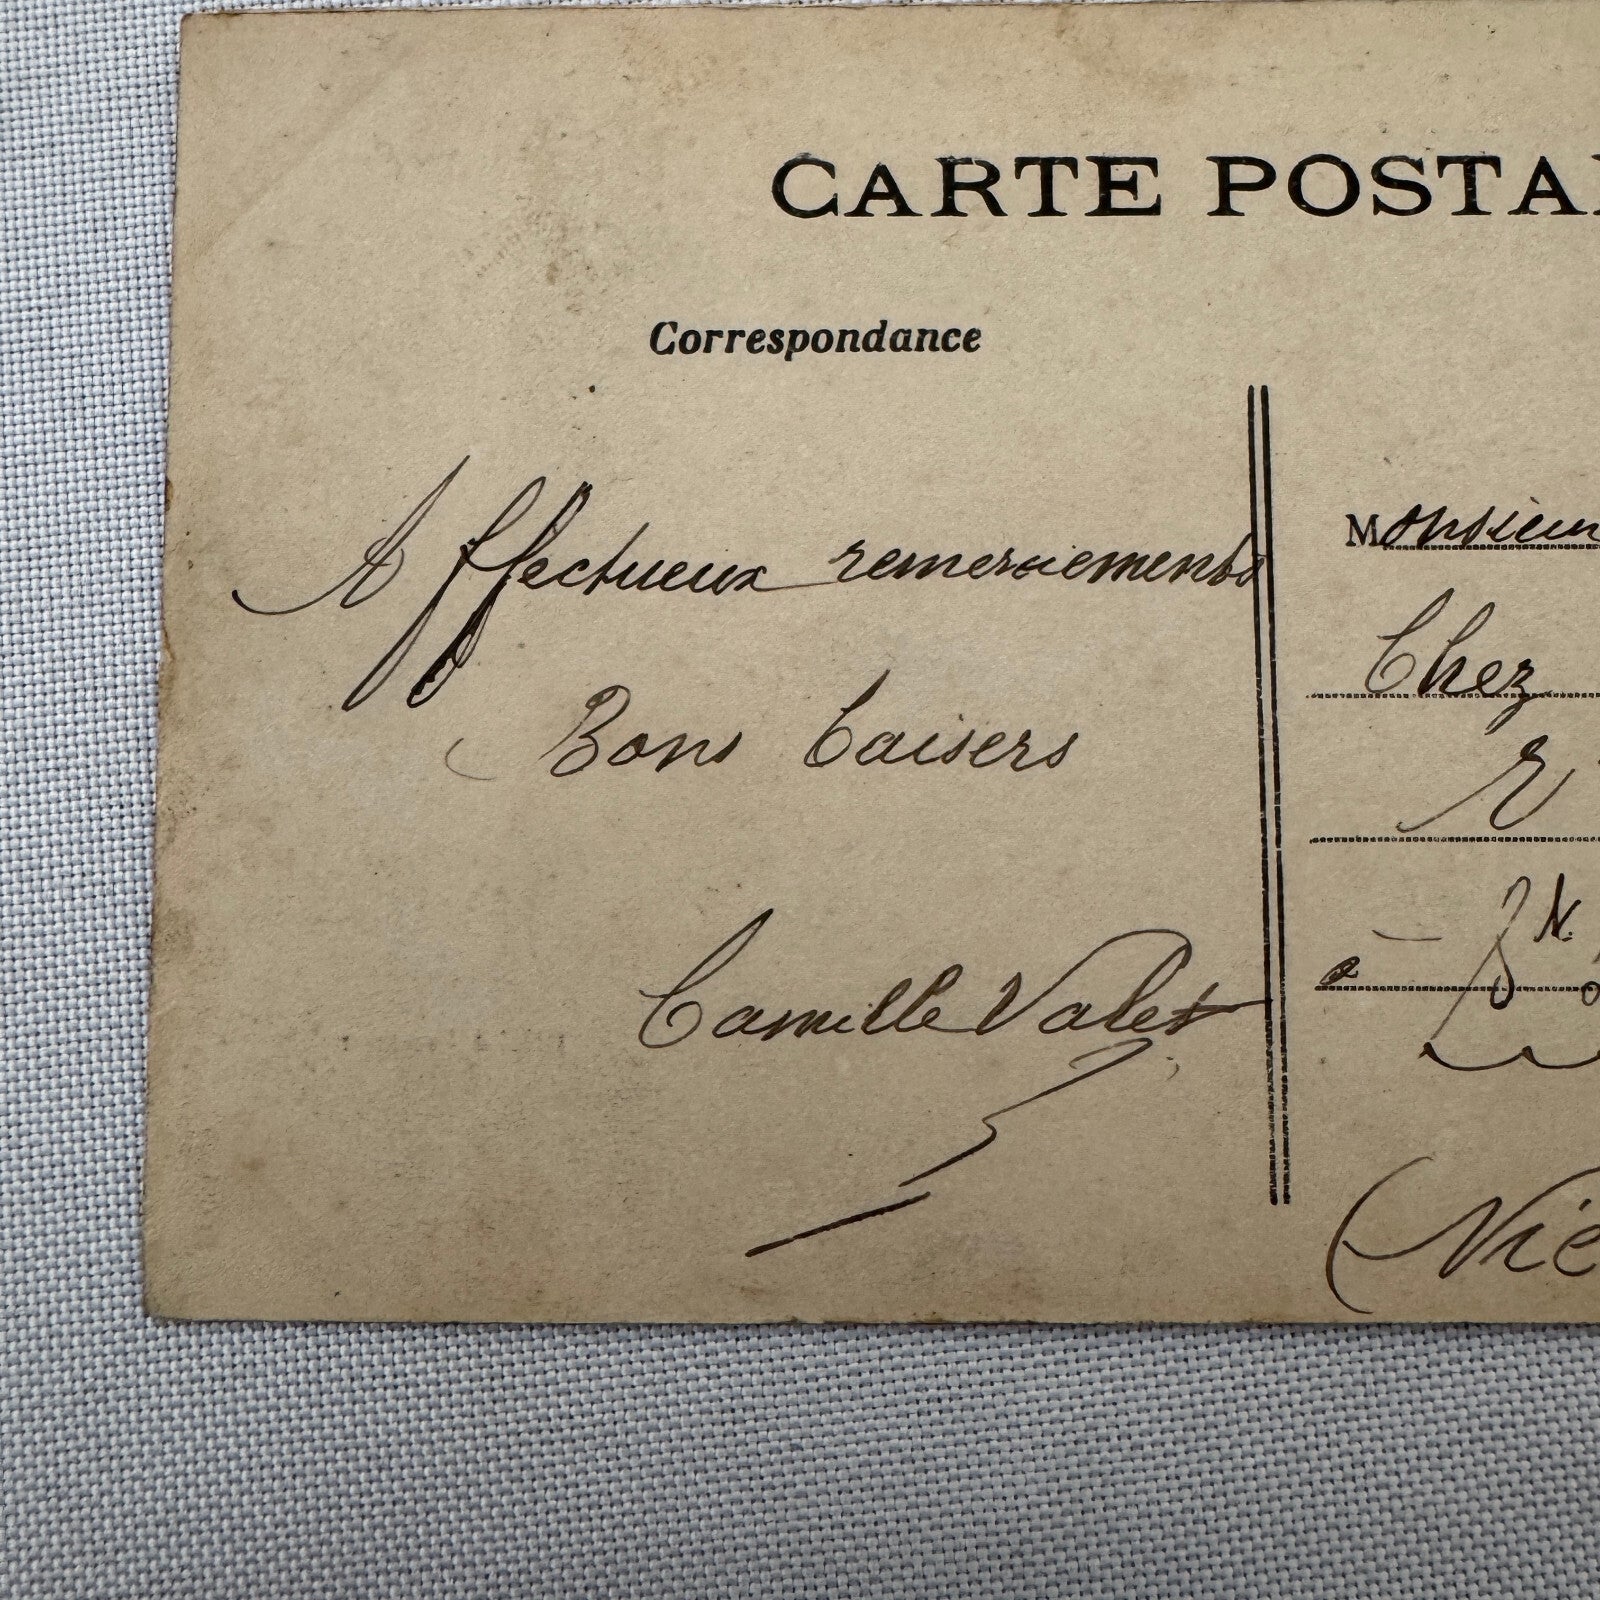 CARTE POSTA
Correspondance
Affectueux remerciements
Bons baisers
Camille Valet
Monsieur
Chez
à
(Niè